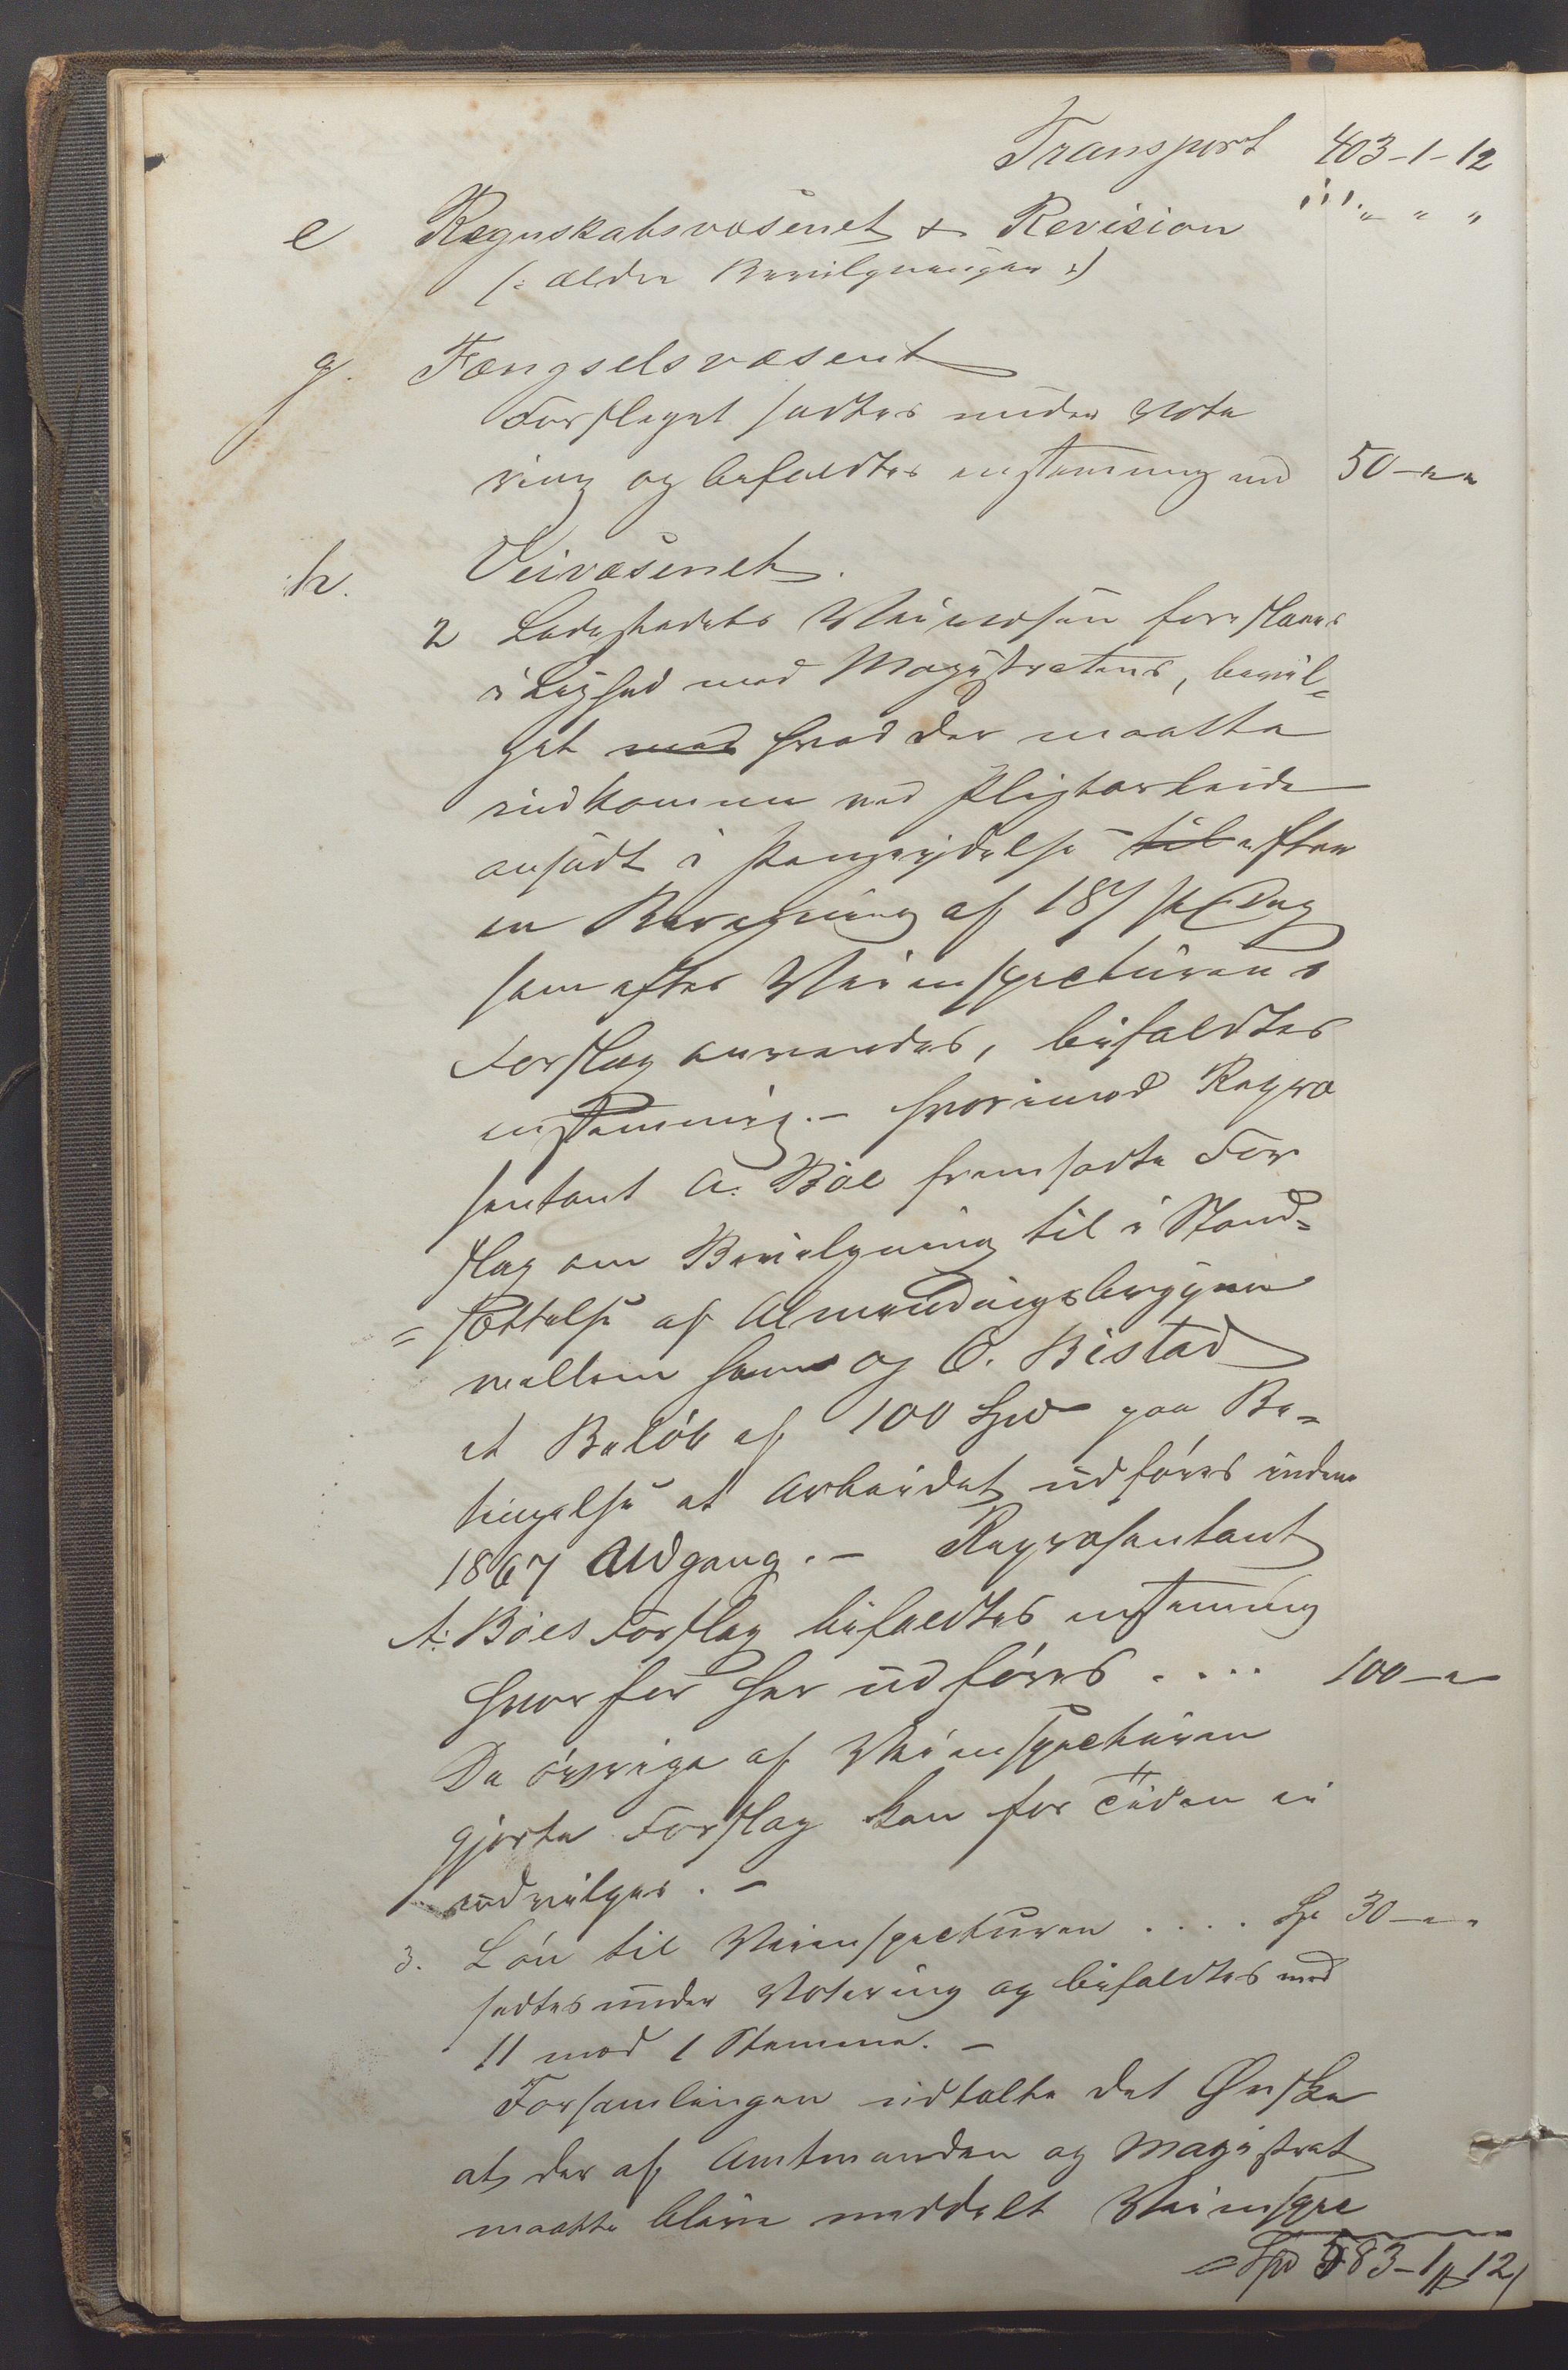 Transport 403-1-12
e Regnskabsvæsenet & Revision " " "
(: ældre Bevilgninger :)
g. Fængselsvæsent
Forslaget sattes under Vote
ring og bifaldtes enstemmig med 50-" "
h. Veivæsenet.
2 Ladestedets Veivæsen foreslaaes
i Lighed med Magistratens, bevil=
get med hvad der maatte
indkomme ved Pligtarbeide
ansadt i Pengeydelse til efter
en Beregning af 18 ß pr Dag
som efter Veiinspecteurens
Forslag anvendes, bifaldtes
enstemmig. - hvorimod Repræ
sentant A. Böe fremsatte For
slag om Bevilgning til i Stand=
=sættelse af Almendingsbryggen
mellem ham og O. Bistad
et Belöb af 100 Spd paa Be=
tingelse at Arbeidet udföres inden
1867 Udgang. - Repræsentant
A. Böes Forslag bifaldtes enstemmig
hvorfor her udföres .... 100-"
De övrige af Veiinspecteuren
gjorte Forslag kan for Tiden ei
indvilges. -
3. Lön til Veiinspecteuren .... Sp 30-" "
sattes under Votering og bifaldtes med
11 mod 1 Stemme. -
Forsamlingen udtalte det Ønske
at der af Amtmanden og Magistrat
maatte blive meddelt Veiinspec
= Spd 583-1 ß 12